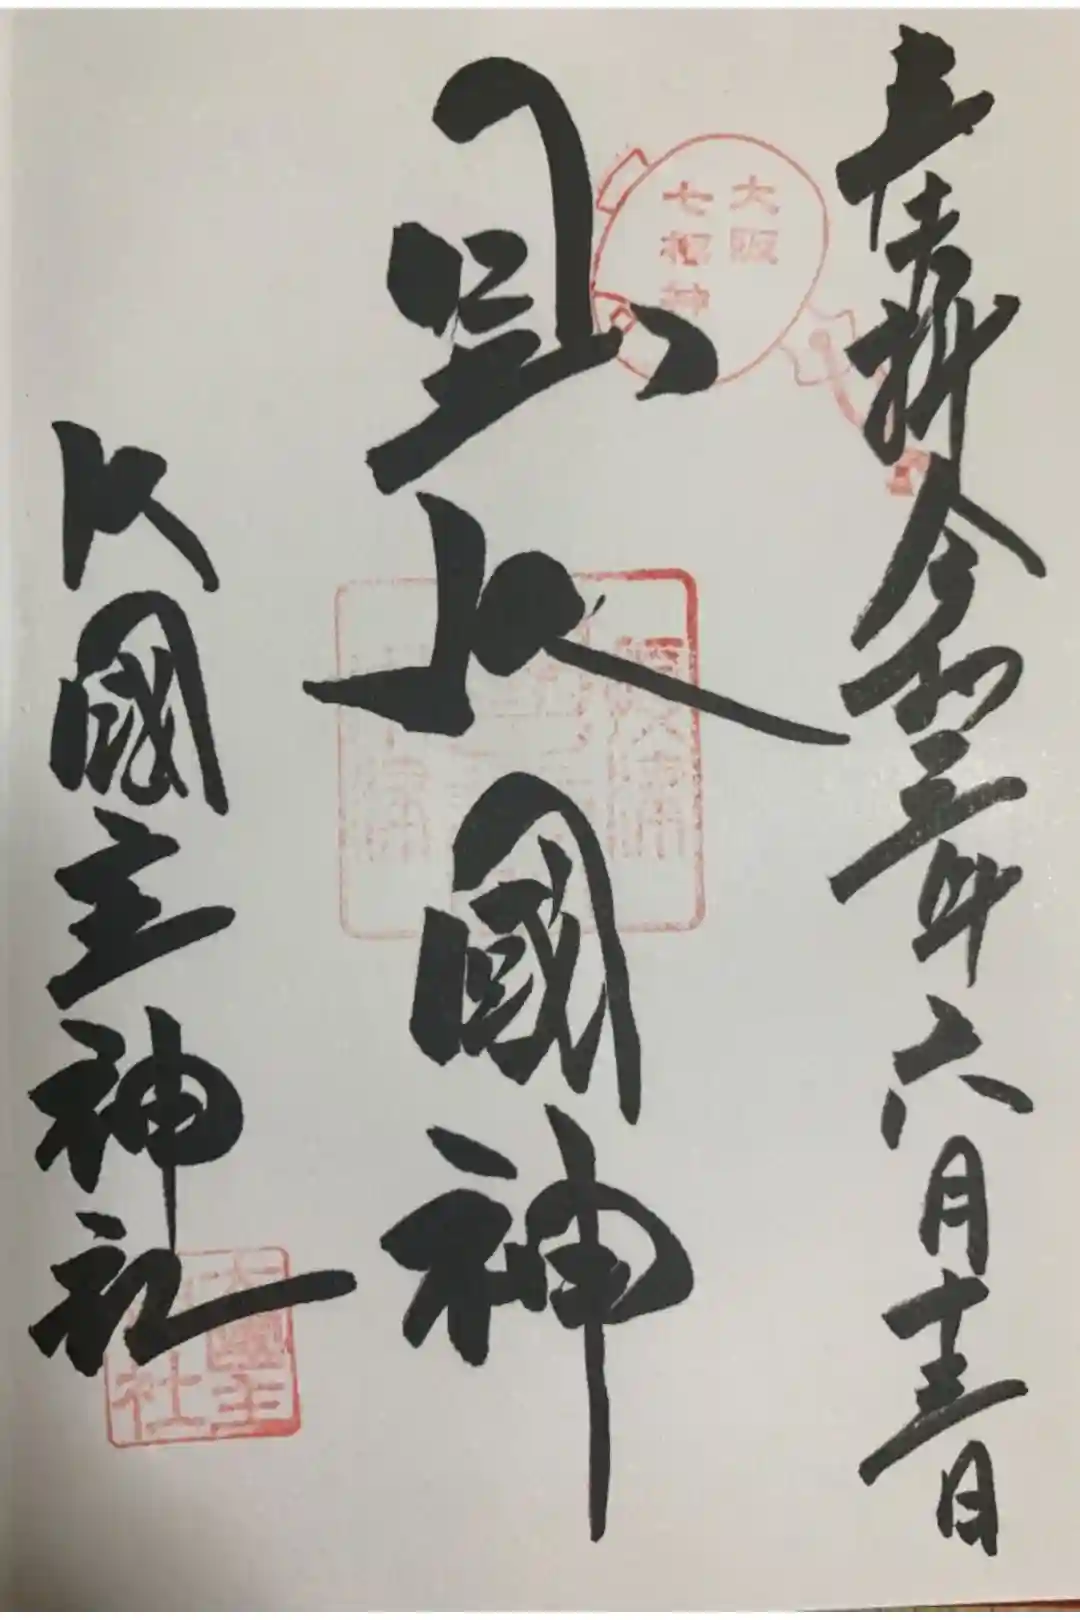 奉拝 令和三年六月十三日
大阪
七福神
大國神
大國主神社
大國主
社